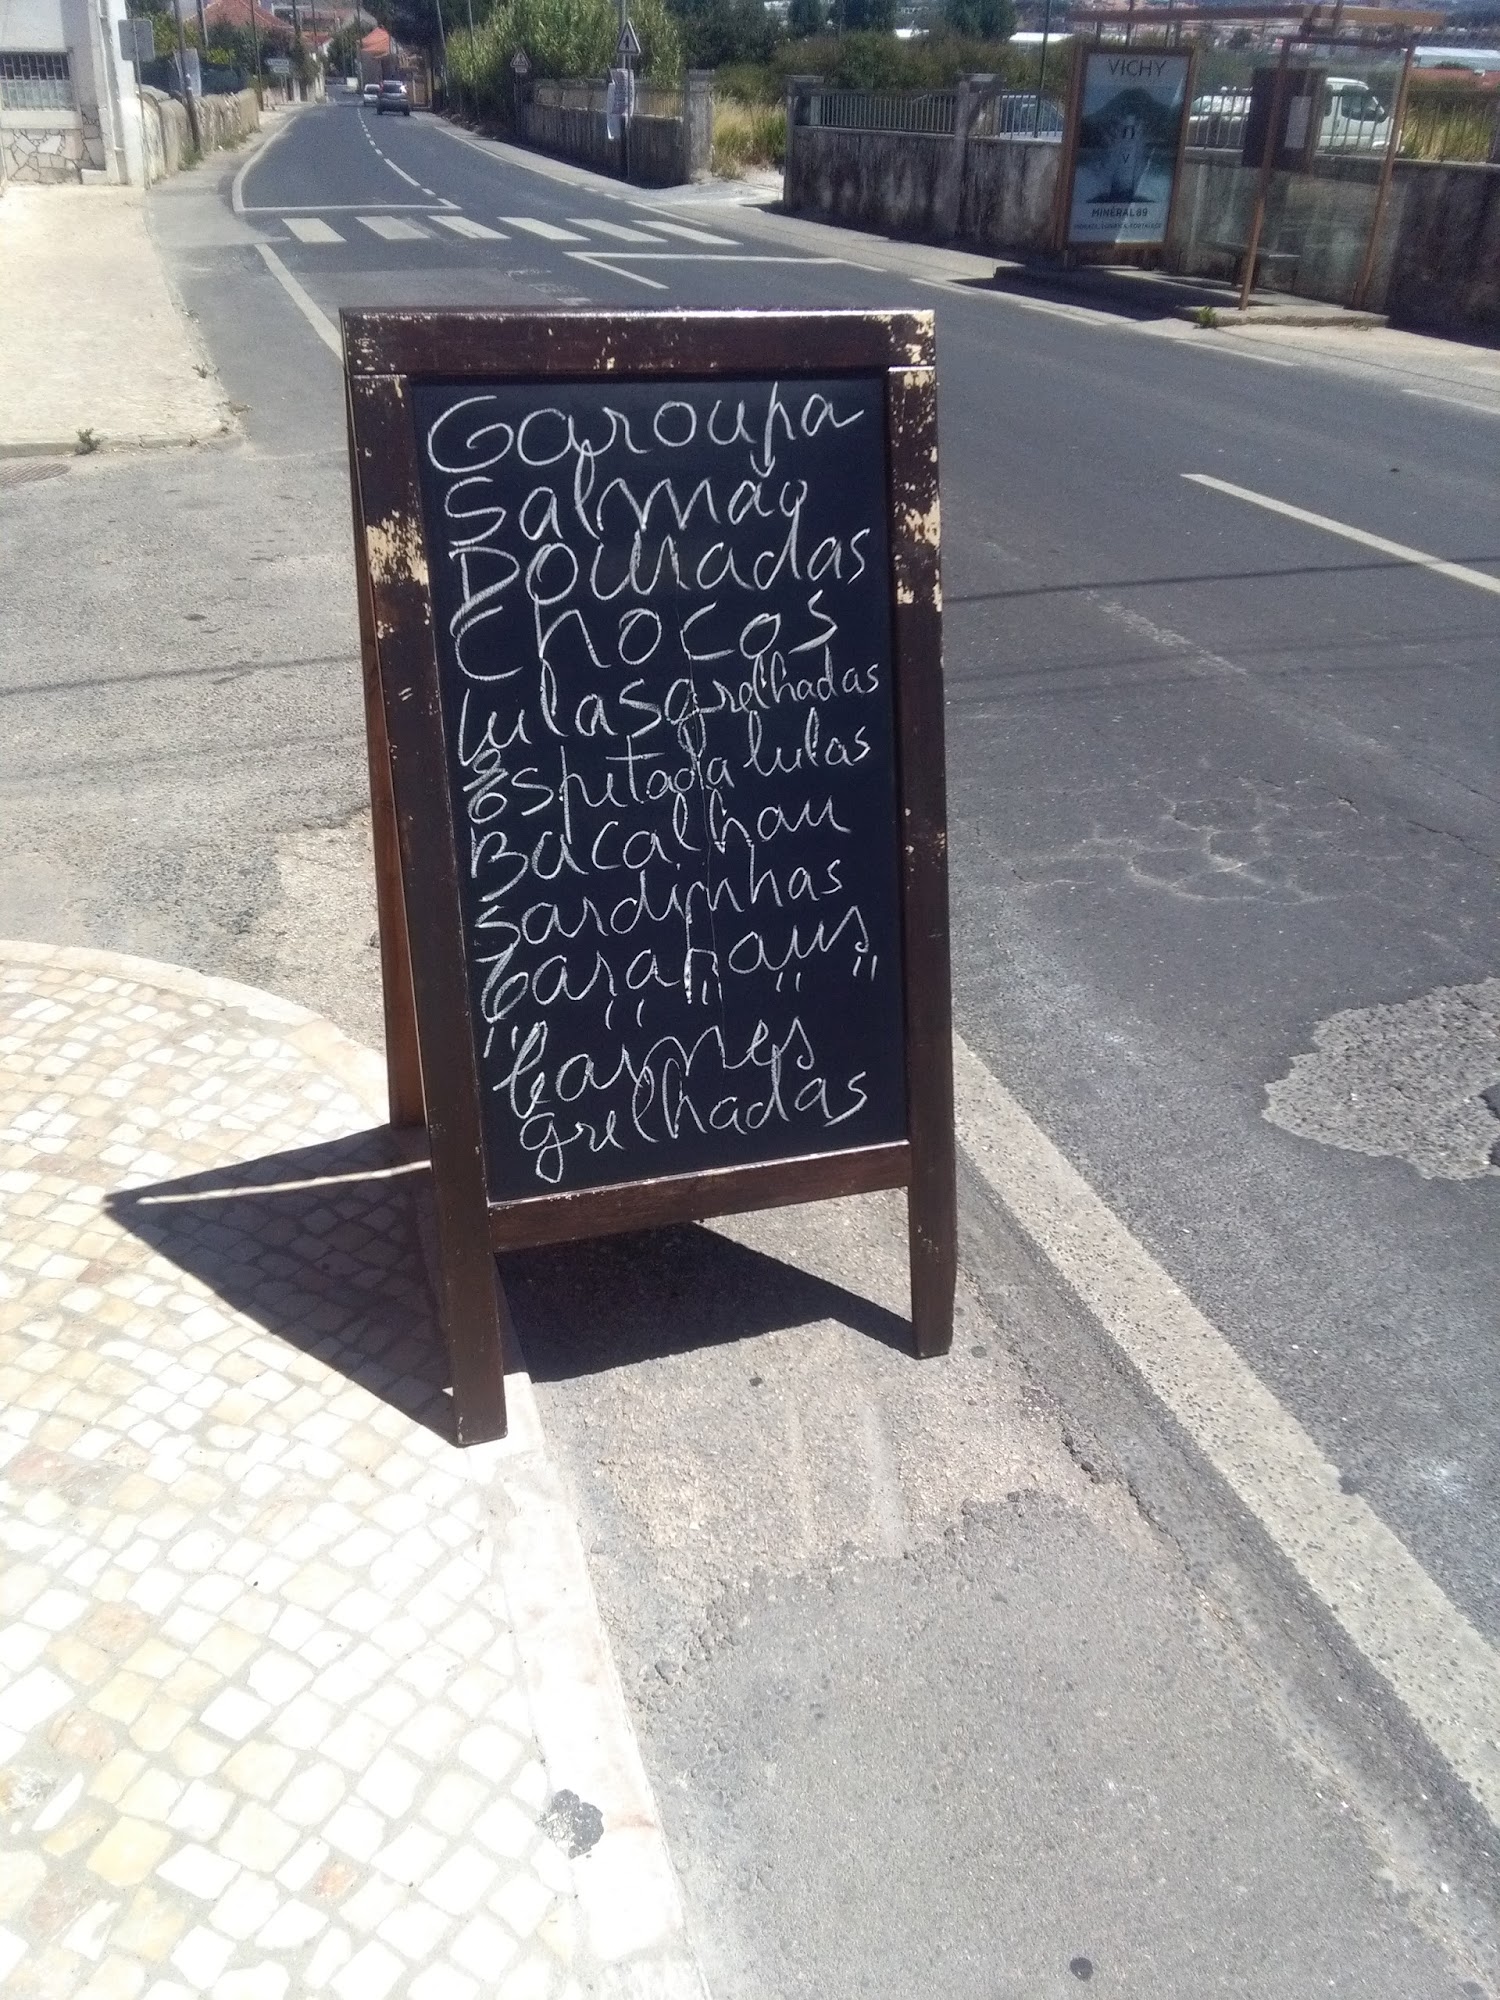 VICHY
MINÉRAL 89
Garoupa
Salmão
Douradas
Chocos
Lulas grelhadas
Espetada lulas
Bacalhau
Sardinhas
Carapaus
" " " " "
Carnes
grelhadas